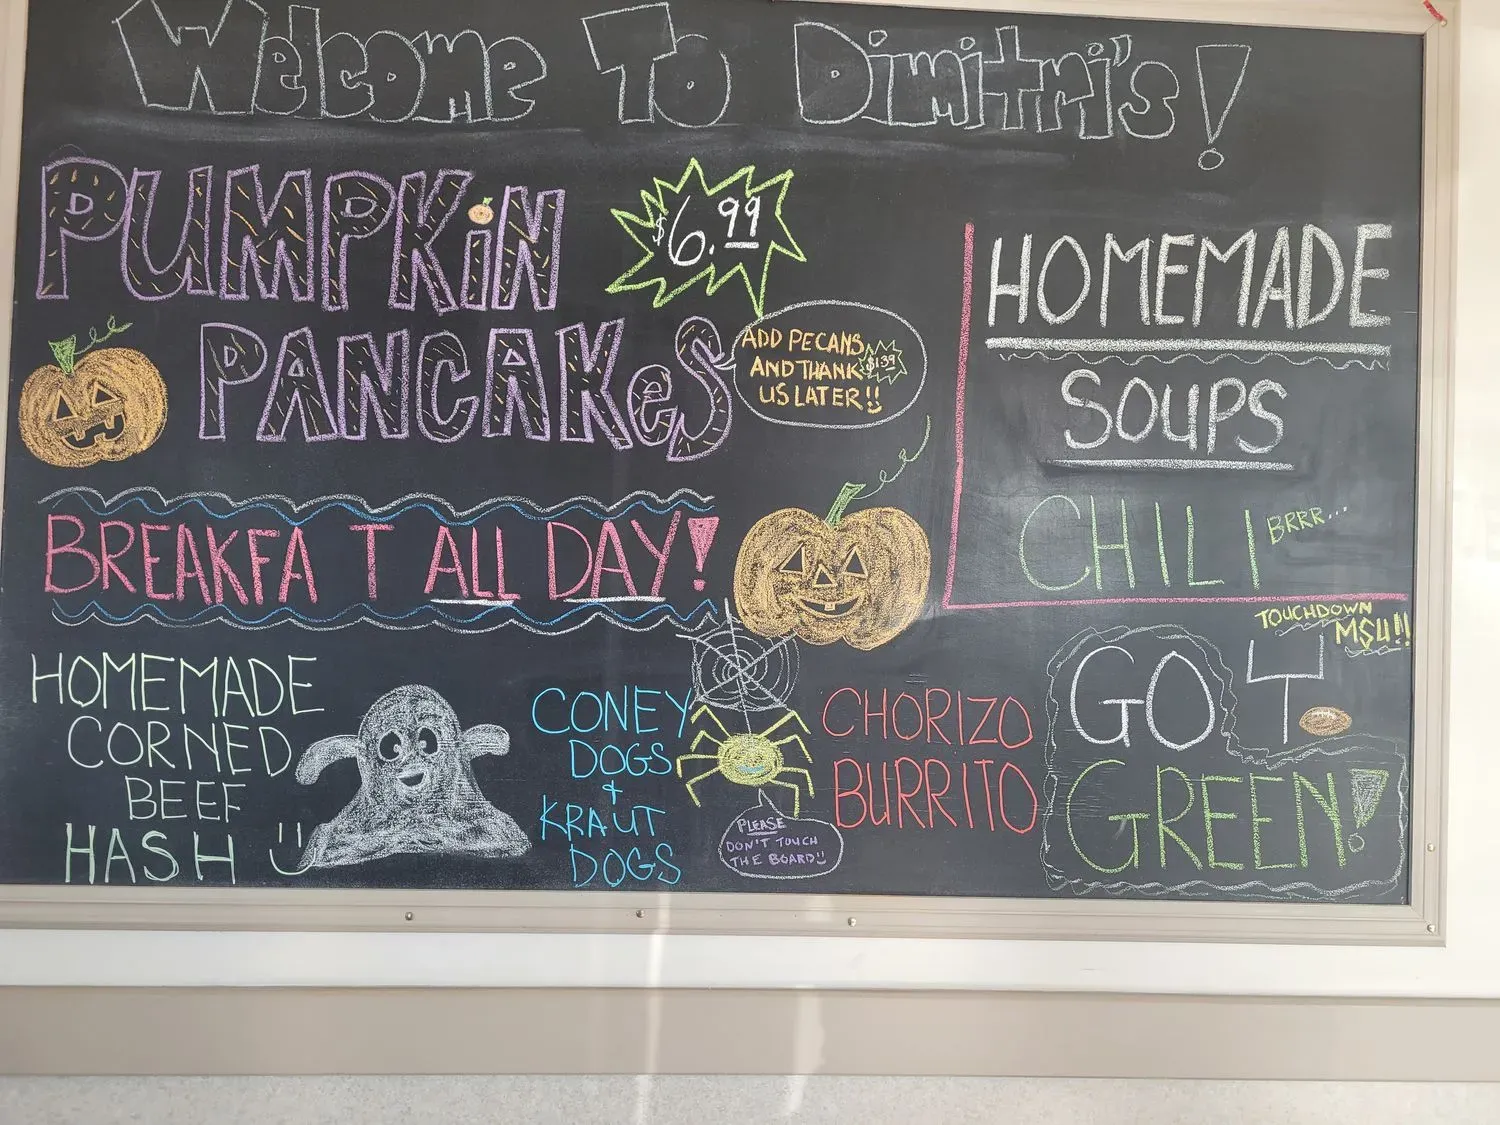 Welcome To Dimitri's!
PUMPKiN
$6.99
PANCAKeS
ADD PECANS
AND THANK $1.39
US LATER!!
BREAKFA T ALL DAY!
HOMEMADE
SOUPS
CHILI BRRR...
HOMEMADE
CORNED
BEEF
HASH
CONEY
DOGS
+
KRAUT
DOGS
PLEASE
DON'T TOUCH
THE BOARD!!
CHORIZO
BURRITO
TOUCHDOWN
MSU!!
GO
GREEN!